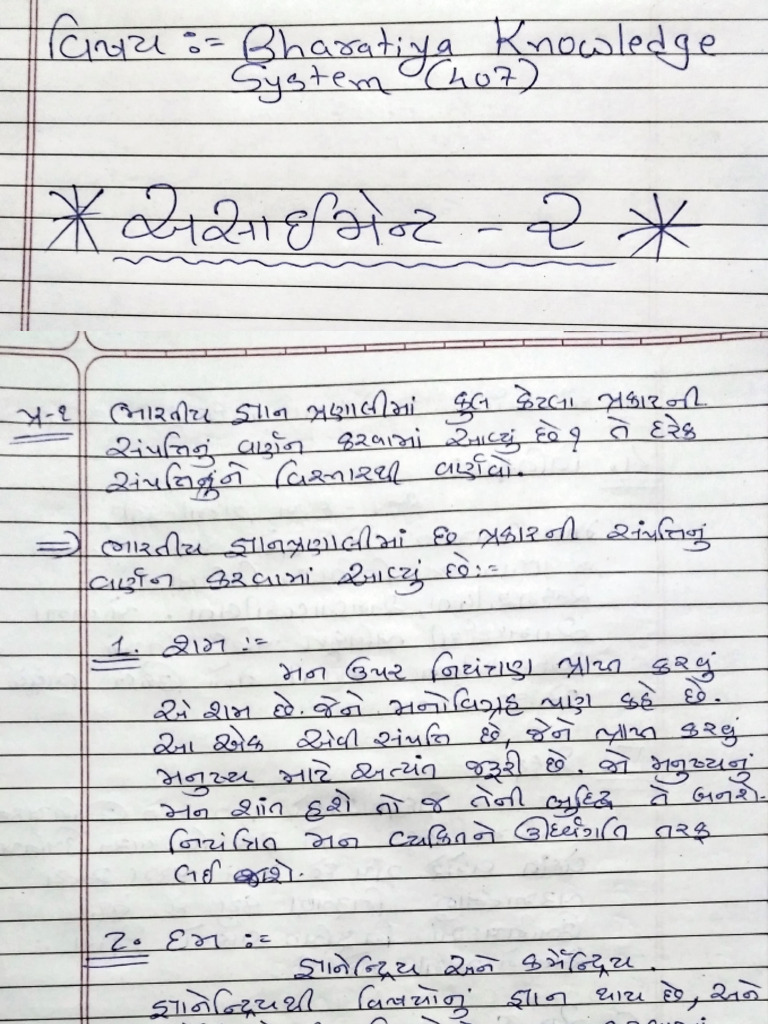 વિષય :- Bharatiya Knowledge
System (407)
* અસાઈમેન્ટ - ૨ *
પ્ર-૧ ભારતીય જ્ઞાન પ્રણાલીમાં કુલ કેટલા પ્રકારની
સંપત્તિનું વર્ણન કરવામાં આવ્યું છે ? તે દરેક
સંપત્તિનુંને વિસ્તારથી વર્ણવો.
=> ભારતીય જ્ઞાનપ્રણાલીમાં છ પ્રકારની સંપત્તિનું
વર્ણન કરવામાં આવ્યું છે:-
1. શમ :-
મન ઉપર નિયંત્રણ પ્રાપ્ત કરવું
એ શમ છે. જેને મનોવિગ્રહ પણ કહે છે.
આ એક એવી સંપતિ છે, જેને પ્રાપ્ત કરવું
મનુષ્ય માટે અત્યંત જરૂરી છે. જો મનુષ્યનું
મન શાંત હશે તો જ તેની બુદ્ધિ તે બનશે.
નિયંત્રિત મન વ્યકિતને ઊર્ધ્વગતિ તરફ
લઈ જાશે.
2. દમ :-
જ્ઞાનેન્દ્રિય અને કર્મેન્દ્રિય.
જ્ઞાનેન્દ્રિયથી વિષયોનું જ્ઞાન થાય છે, અને